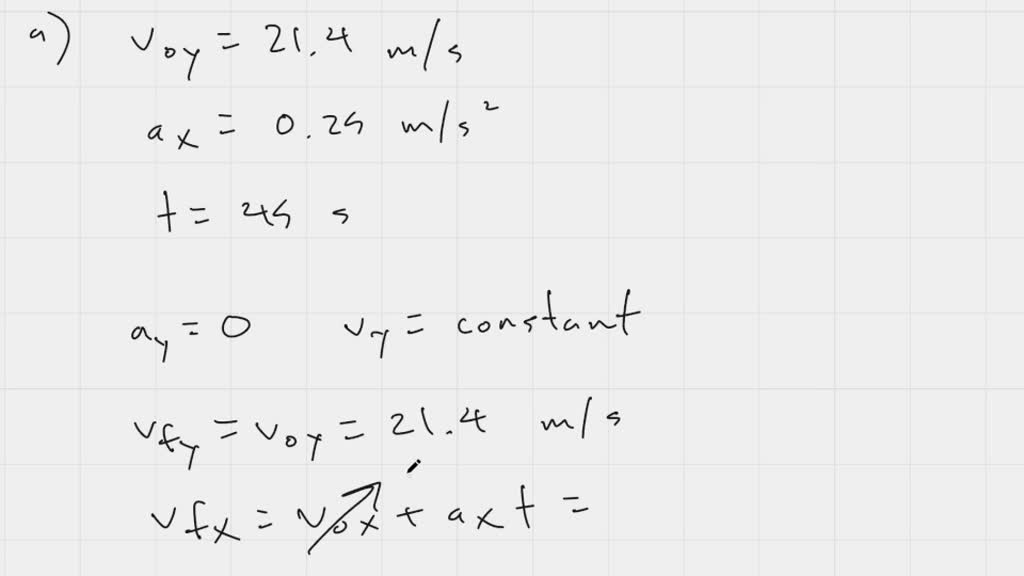 a) v₀y = 21.4 m/s
ax = 0.25 m/s²
t = 45 s
ay = 0 vy = constant
vfy = v₀y = 21.4 m/s
vfx = v₀x + axt =